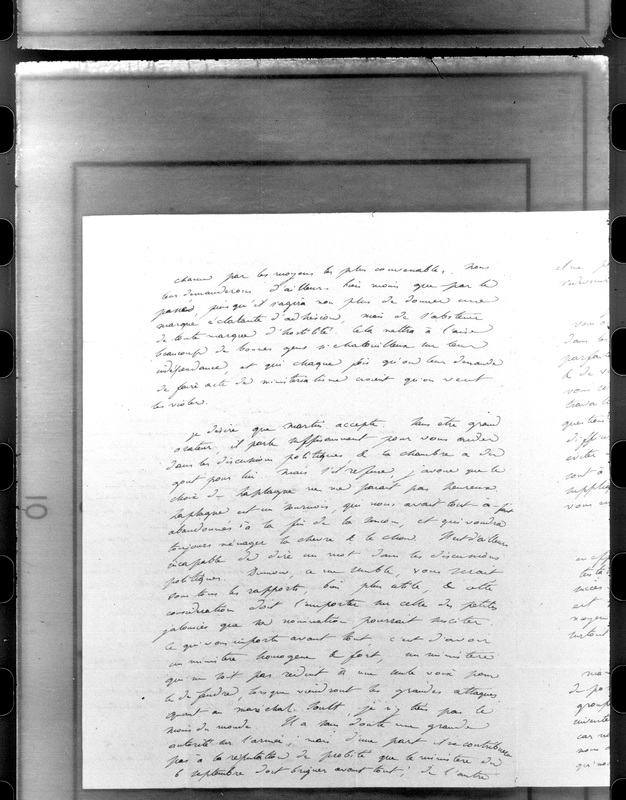 chacun par les moyens les plus convenables. Nous
leur demanderons d'ailleurs bien moins que par le
passé, puisqu'il s'agira non plus de donner une
marque éclatante d'adhésion, mais de s'abstenir
de toute marque d'hostilité. Cela mettra à l'aise
beaucoup de bonnes gens si chatouilleux sur leur
indépendance, et qui chaque fois qu'on leur demande
de faire acte de ministérialisme croient qu'on veut
les violer.
je désire que martin accepte. Sans être grand
orateur, il parle suffisamment pour vous aider
dans les discussions politiques & la chambre a du
gout pour lui. mais s'il refuse, j'avoue que le
choix de laplagne ne me parait pas heureux.
laplagne est un qui nous avait tout à fait
abandonnés à la fin de la session, et qui voudra
toujours ménager la chevre & le chou. Il est d'ailleurs
incapable de dire un mot dans les discussions
politiques. Dumon, a me semble, vous serait
sous tous les rapports, bien plus utile, & cette
considération doit l'emporter sur celle des petites
jalousies que sa nomination pourrait exciter.
Ce qui vous importe avant tout, c'est d'avoir
un ministère homogène & fort, un ministère
qui ne soit pas réduit à une seule voix pour
le défendre, lorsque viendront les grandes attaques
quant au maréchal Soult, je n'y tiens pas le
moins du monde. Il a sans doute une grande
autorité sur l'armée; mais d'une part il ne contribuera
pas à la réputation de probité que le ministère du
6 septembre doit briguer avant tout; de l'autre